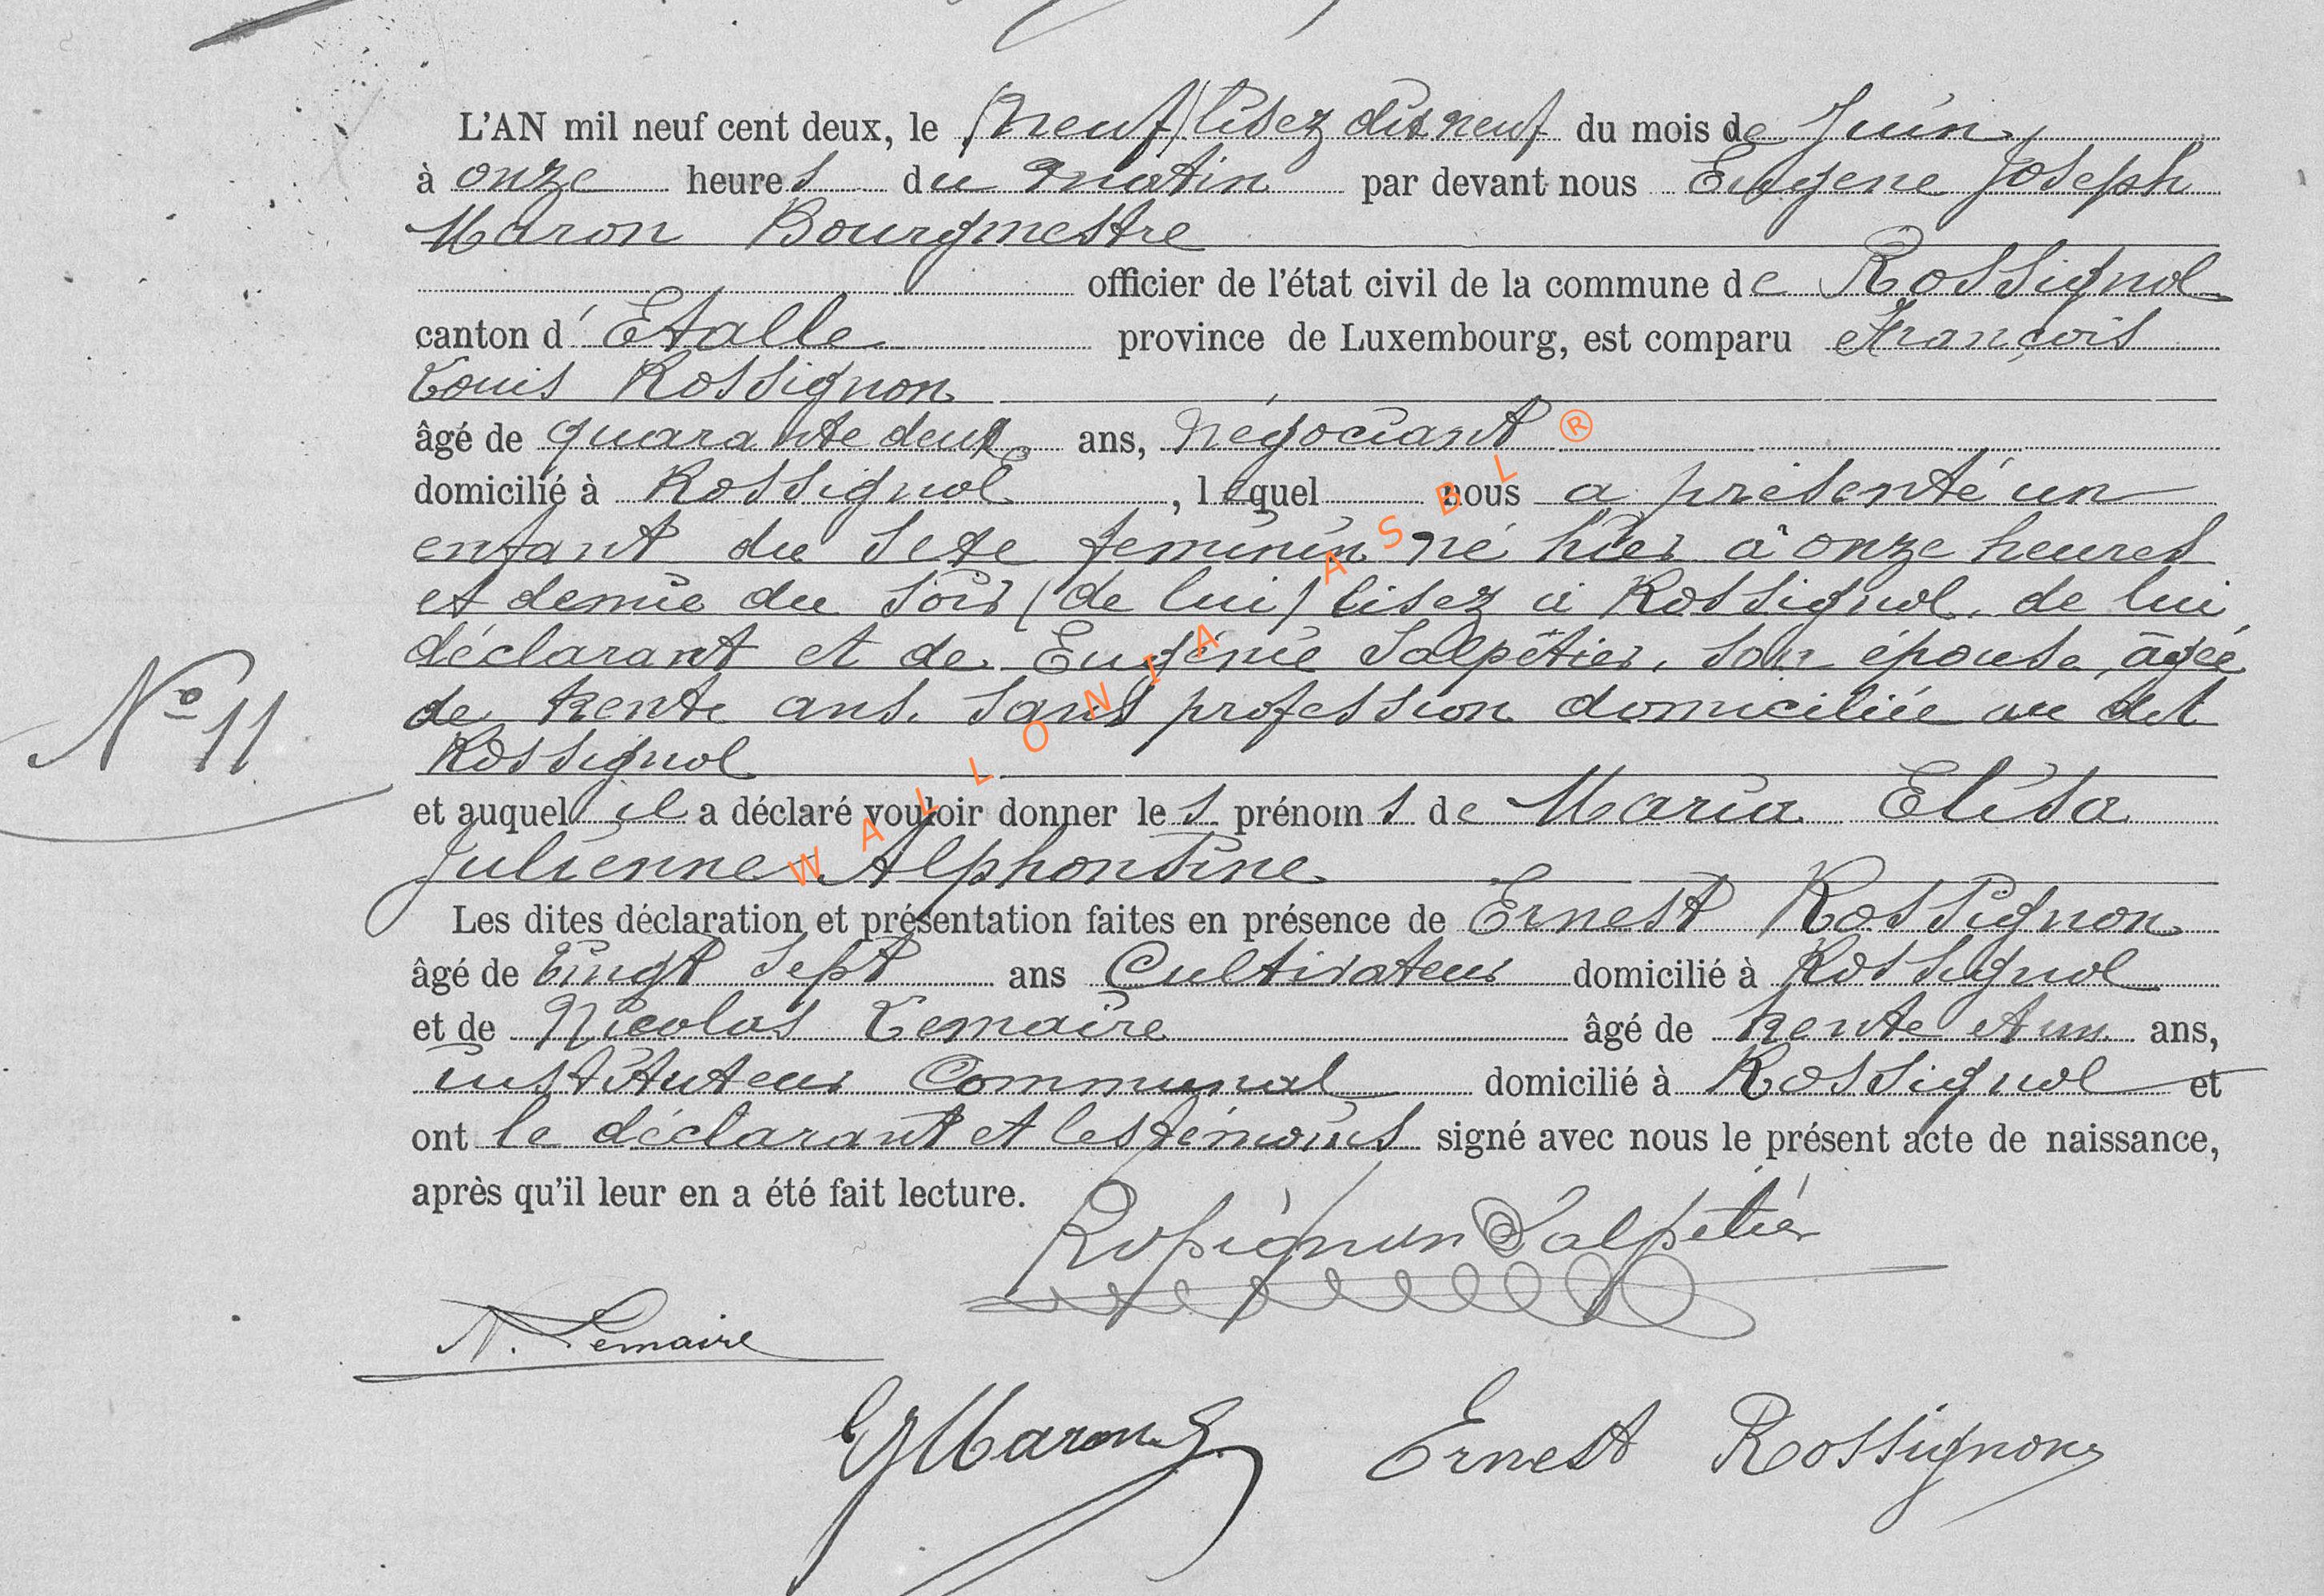 L'AN mil neuf cent deux, le (neuf) lisez dix neuf du mois de Juin
à onze heures du matin par devant nous Eugene Joseph
Maron Bourgmestre
officier de l'état civil de la commune de Rossignol
canton d'Etalle province de Luxembourg, est comparu François
Louis Rossignon
âgé de quarante deux ans, négociant ®
domicilié à Rossignol, lequel nous a présenté un
enfant du sexe feminin né hier à onze heures
et demie du soir (de lui) lisez à Rossignol, de lui
déclarant et de Eugénie Salpêtier, son épouse, âgée
de trente ans, sans profession domiciliée au dit
Nº 11
Rossignol
et auquel il a déclaré vouloir donner les prénoms de Maria Elisa
Julienne Alphonsine
Les dites déclaration et présentation faites en présence de Ernest Rossignon
âgé de vingt sept ans Cultivateur domicilié à Rossignol
et de Nicolas Lemaire âgé de trente et un ans,
instituteur Communal domicilié à Rossignol et
ont le déclarant et les témoins signé avec nous le présent acte de naissance,
après qu'il leur en a été fait lecture.
Rossignon Salpétier
N. Lemaire
EJMaron
Ernest Rossignon
WALLONIA ASBL